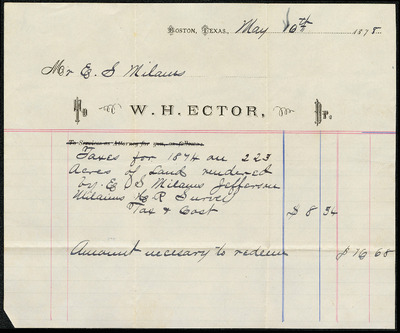 Boston, Texas, May 16th 1878
Mr E S Milams
To W. H. ECTOR, Dr.
To Services as Attorney for you, as follows:
Taxes for 1874 on 223
Acres of Land rendered
by E S Milams Jefferson
Milams H R Survey
Tax & Cost $ 8 34
Amount necesary to redeem $ 16 68